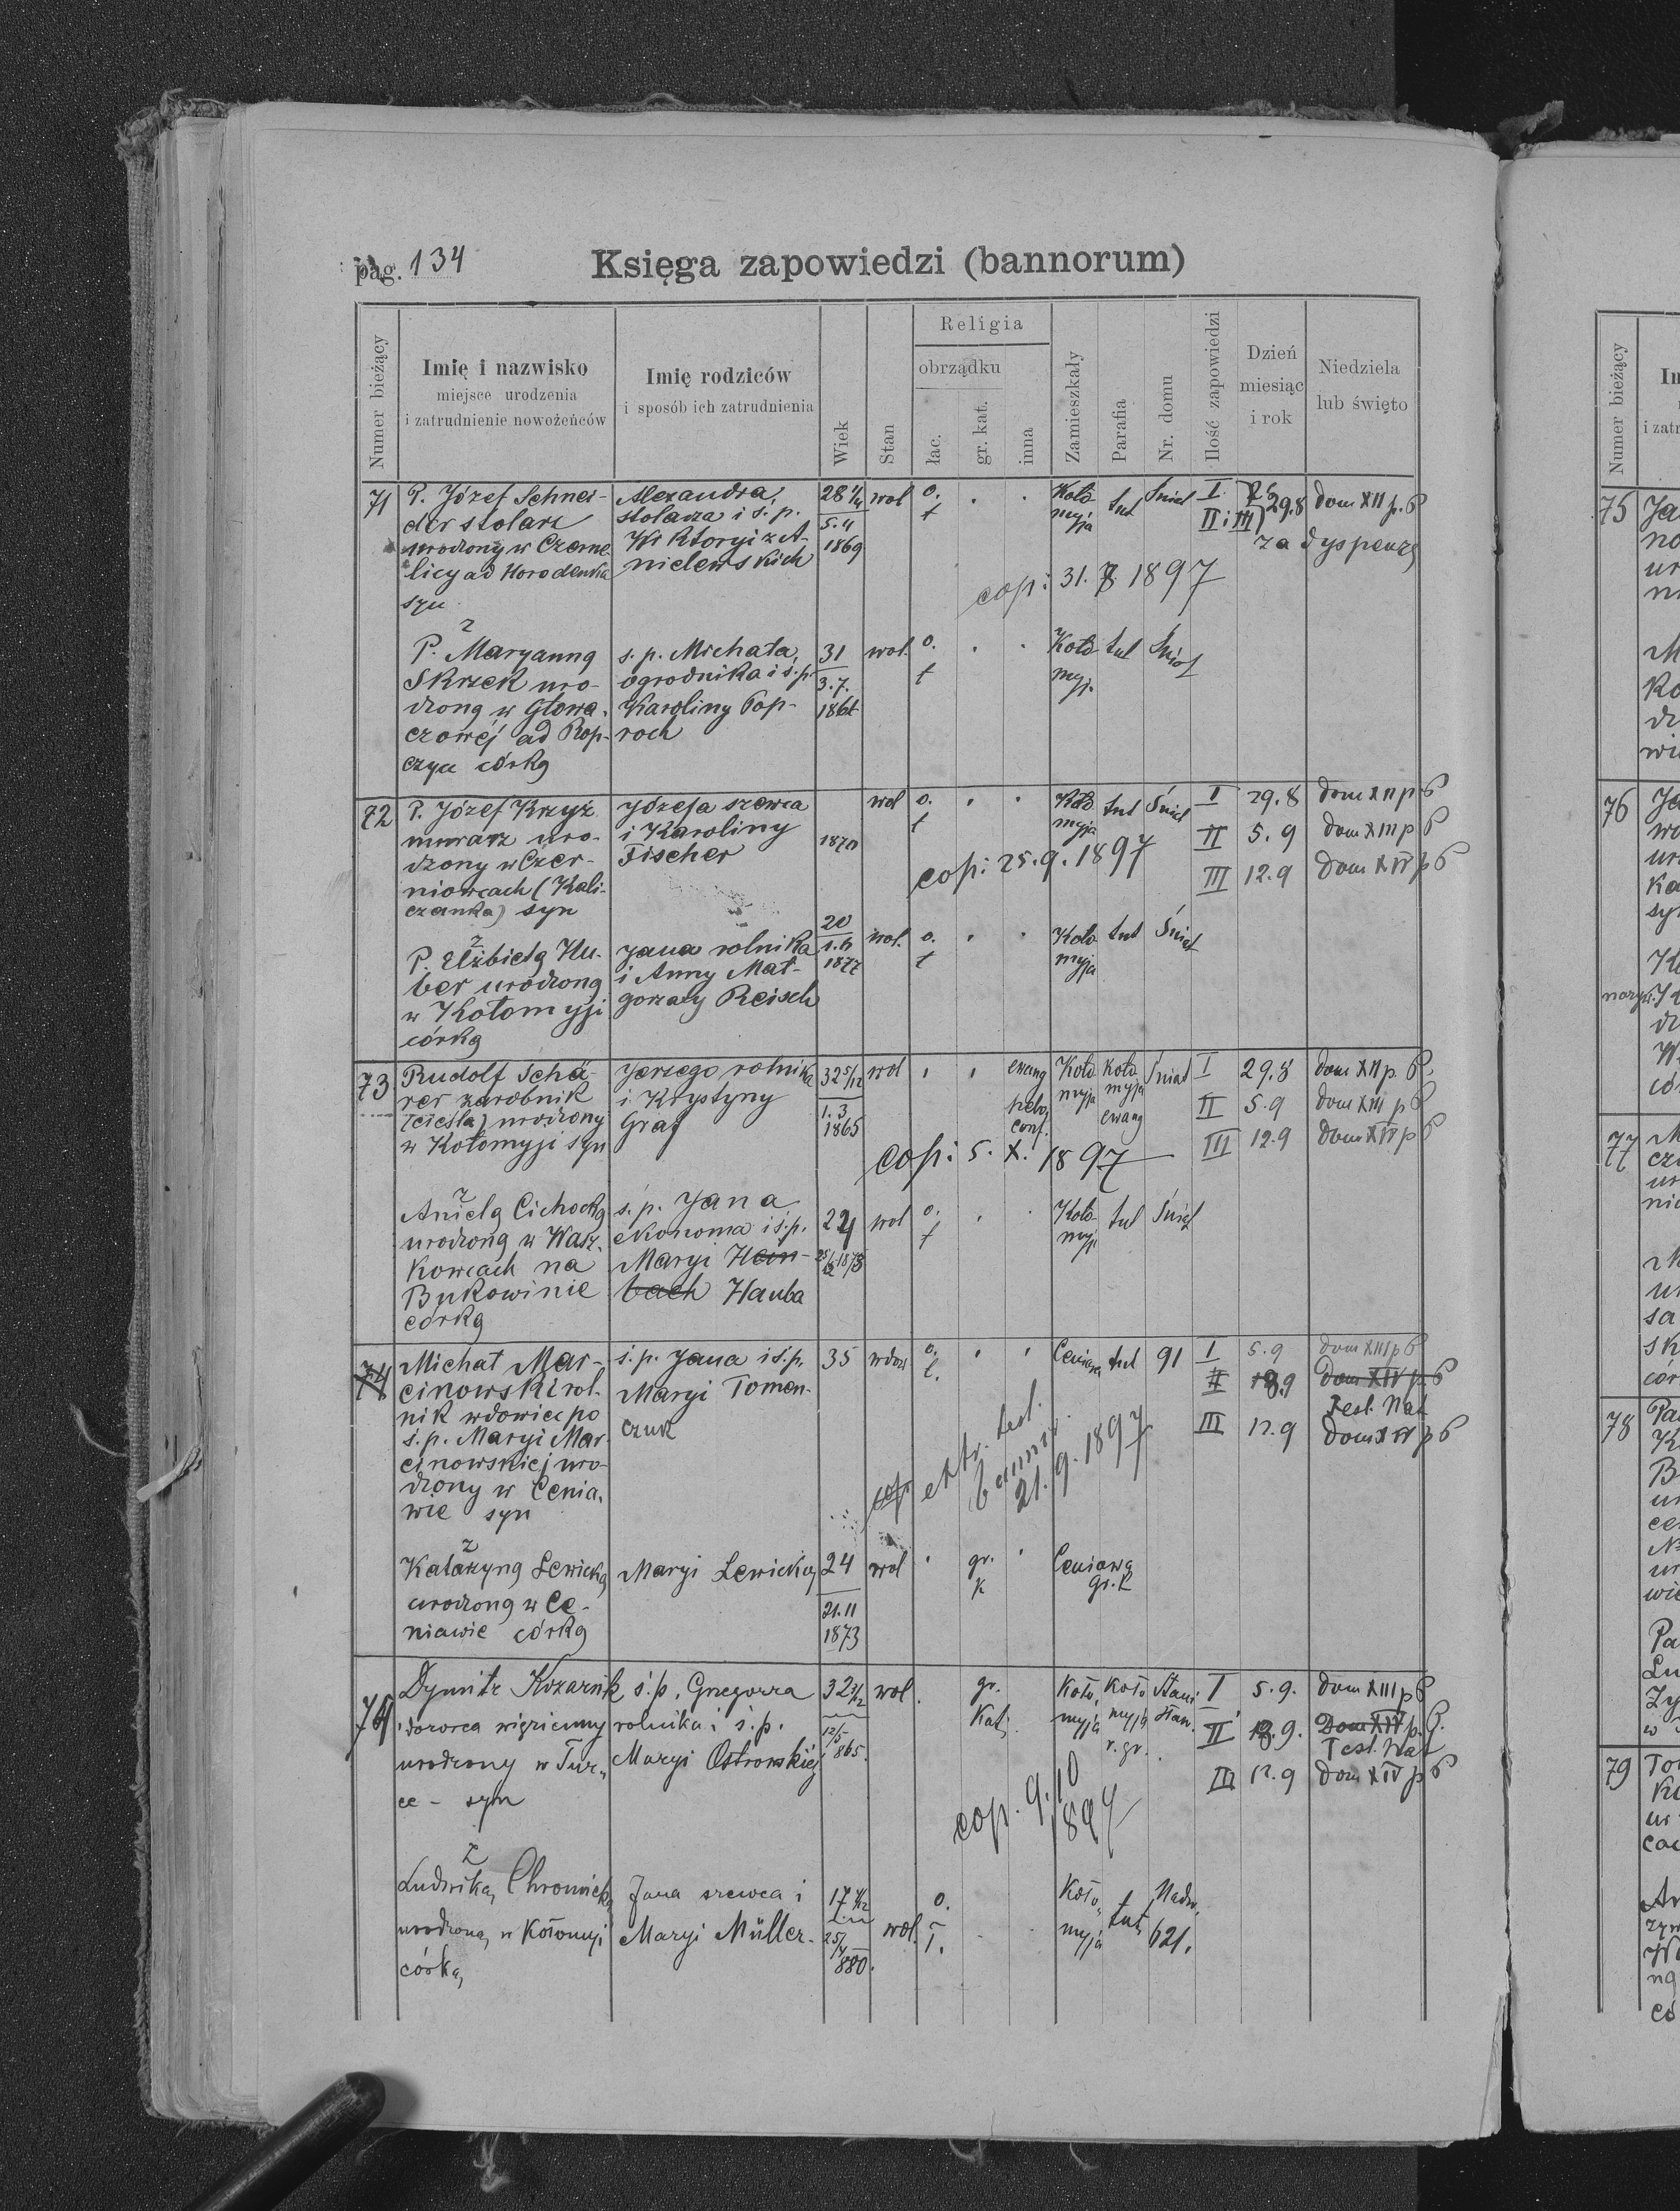 pag. 134
Księga zapowiedzi (bannorum)
Numer bieżący
Imię i nazwisko
miejsce urodzenia
i zatrudnienie nowożeńców
Imię rodziców
i sposób ich zatrudnienia
Wiek
Stan
Religia
obrządku
łac.
gr. kat.
inna
Zamieszkały
Parafia
Nr. domu
Ilość zapowiedzi
Dzień
miesiąc
i rok
Niedziela
lub święto
71
P. Józef Schnei-
der stolarz
urodzony w Czerne
licy ad Horodenka
syn
Alexandra,
stolarza i ś. p.
Wiktoryi z A-
nielewskich
28
5.4
1869
wol
o.
ł
Koło
myja
tut
Śniat
I
II i III
29.8
dom XII p. 6
za dyspenzą
cop: 31. 8. 1897
z
P. Maryanną
Skrzek uro-
dzoną w Głowa-
czowéj ad Rop-
czyce córką
ś. p. Michała,
ogrodnika i ś. p.
Karoliny Pop-
roch
31
3.7.
wol.
o.
ł
Koło
myj.
tut
Śniat
72
P. Józef Krzyż
murarz uro-
dzony w Czer-
niowcach (Kali-
czanka) syn
Józefa szewca
i Karoliny
Fischer
1870
wol
o.
ł
Koło
myja
tut
Śniat
I 29.8 dom XII p 6
II 5.9 dom XIII p 6
III 12.9 dom XIV p 6
cop: 25.9.1897
z
P. Elżbietą Hu-
ber urodzoną
w Kołomyji
córką
Jana rolnika
i Anny Mał-
gorzaty Reisch
20
1877
wol.
o.
ł
Koło
myja
tut
Śniat
73
Rudolf Schä-
rer zarobnik
(cieśla) urodzony
w Kołomyji syn
Jerzego rolnika
i Krystyny
Graf
32 5/12
1.3
1865
wol
ewang
helv.
conf.
Koło
myja
Koło
myja
ewang
Śniat
I 29.8 dom XII p. 6.
II 5.9 dom XIII p 6
III 12.9 dom XIV p 6
cop: 5. X. 1897
z
Anielą Cichocką
urodzoną w Wasz-
kowcach na
Bukowinie
córką
ś. p. Jana
ekonoma i ś. p.
Maryi Hein-
bach Hauba
24
wol
o.
ł
Koło
myj.
tut
Śniat
74
Michał Mar-
cinowski rol-
nik wdowiec po
ś. p. Maryi Mar-
cinowskiej uro-
dzony w Cenia-
wie syn
ś. p. Jana i ś. p.
Maryi Tomen-
czuk
35
wdow
o.
ł.
Ceniawa
tut
91
I 5.9 dom XIII p 6
II 8.9 Dom XIV p. 6
Fest. Nat
III 12.9 dom XIV p 6
cop extr. test.
bannor.
21.9.1897
z
Katarzyną Lewicką
urodzoną w Ce-
niawie córką
Maryi Lewickiej
24
21.11
1873
wol
gr.
k
Ceniawa
gr. k
74
Dymitr Kozaruk
dozorca więzienny
urodzony w Tur-
ce - syn
ś. p. Grzegorza
rolnika i ś. p.
Maryi Ostrowskiéj
32
12/5
865.
wol.
gr.
Kat.
Koło-
myja
Koło
myja
r. gr.
Stani
sław.
I 5.9. dom XIII p 6
II 8.9. Dom XIV p. 6.
Fest. Nat
III 12.9 dom XIV p 6
cop. 9.10
1897
z
Ludwiką Chromicką
urodzoną w Kołomyi
córką,
Jana szewca i
Maryi Müller.
17
25/4
880.
wol.
o.
ł.
Koło-
myja
tut.
Nadw.
621.
Numer bieżący
75
76
77
78
79